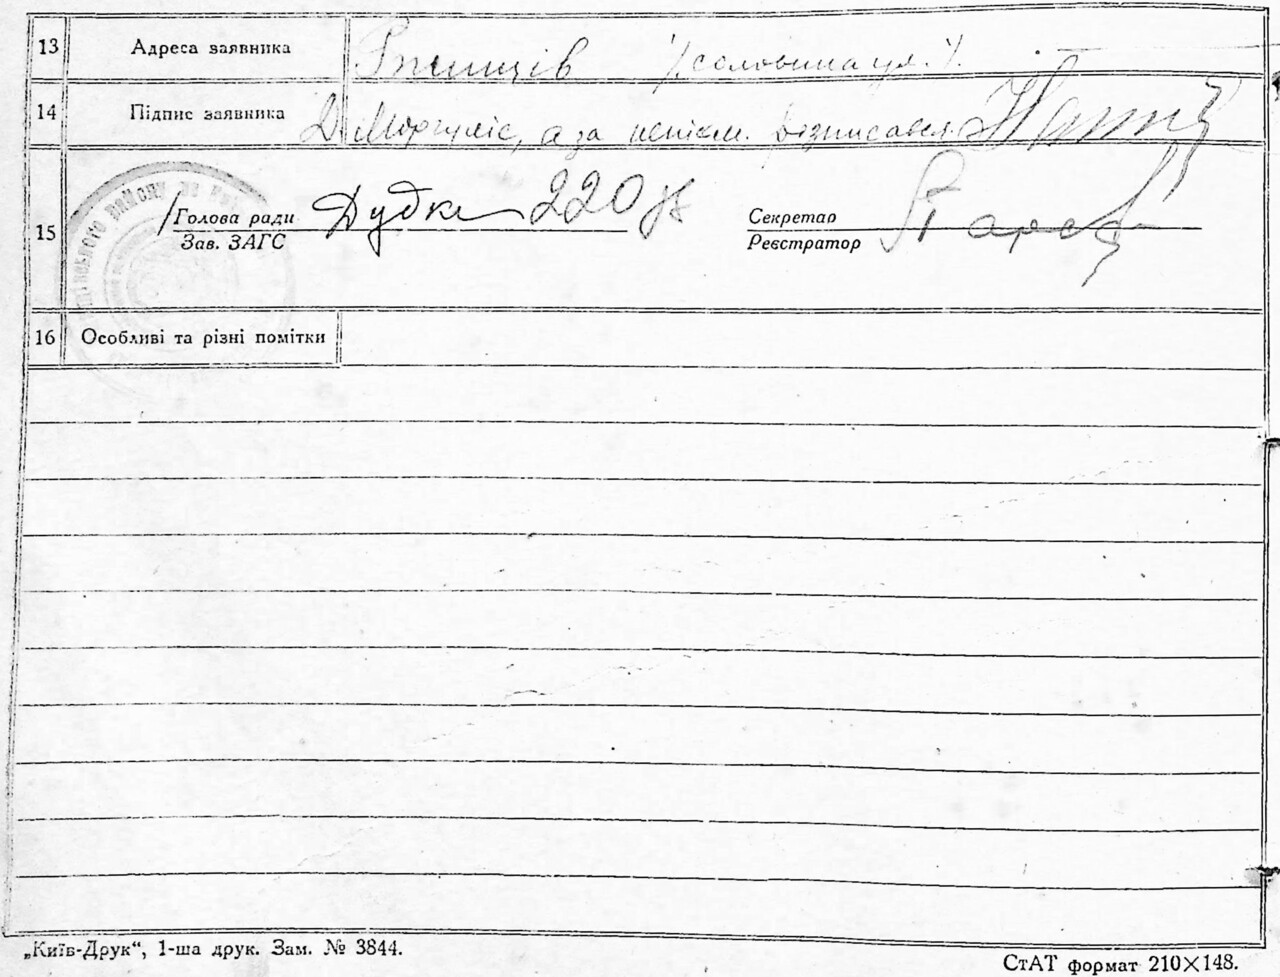 13 Адреса заявника Ржищів /соловина ул./.
14 Підпис заявника Д. Моргуліс, а за неписм. розписався
15 Голова ради Дудка Секретар
Зав. ЗАГС Реєстратор
16 Особливі та різні помітки
„Київ-Друк“, 1-ша друк. Зам. № 3844.
СтАТ формат 210×148.